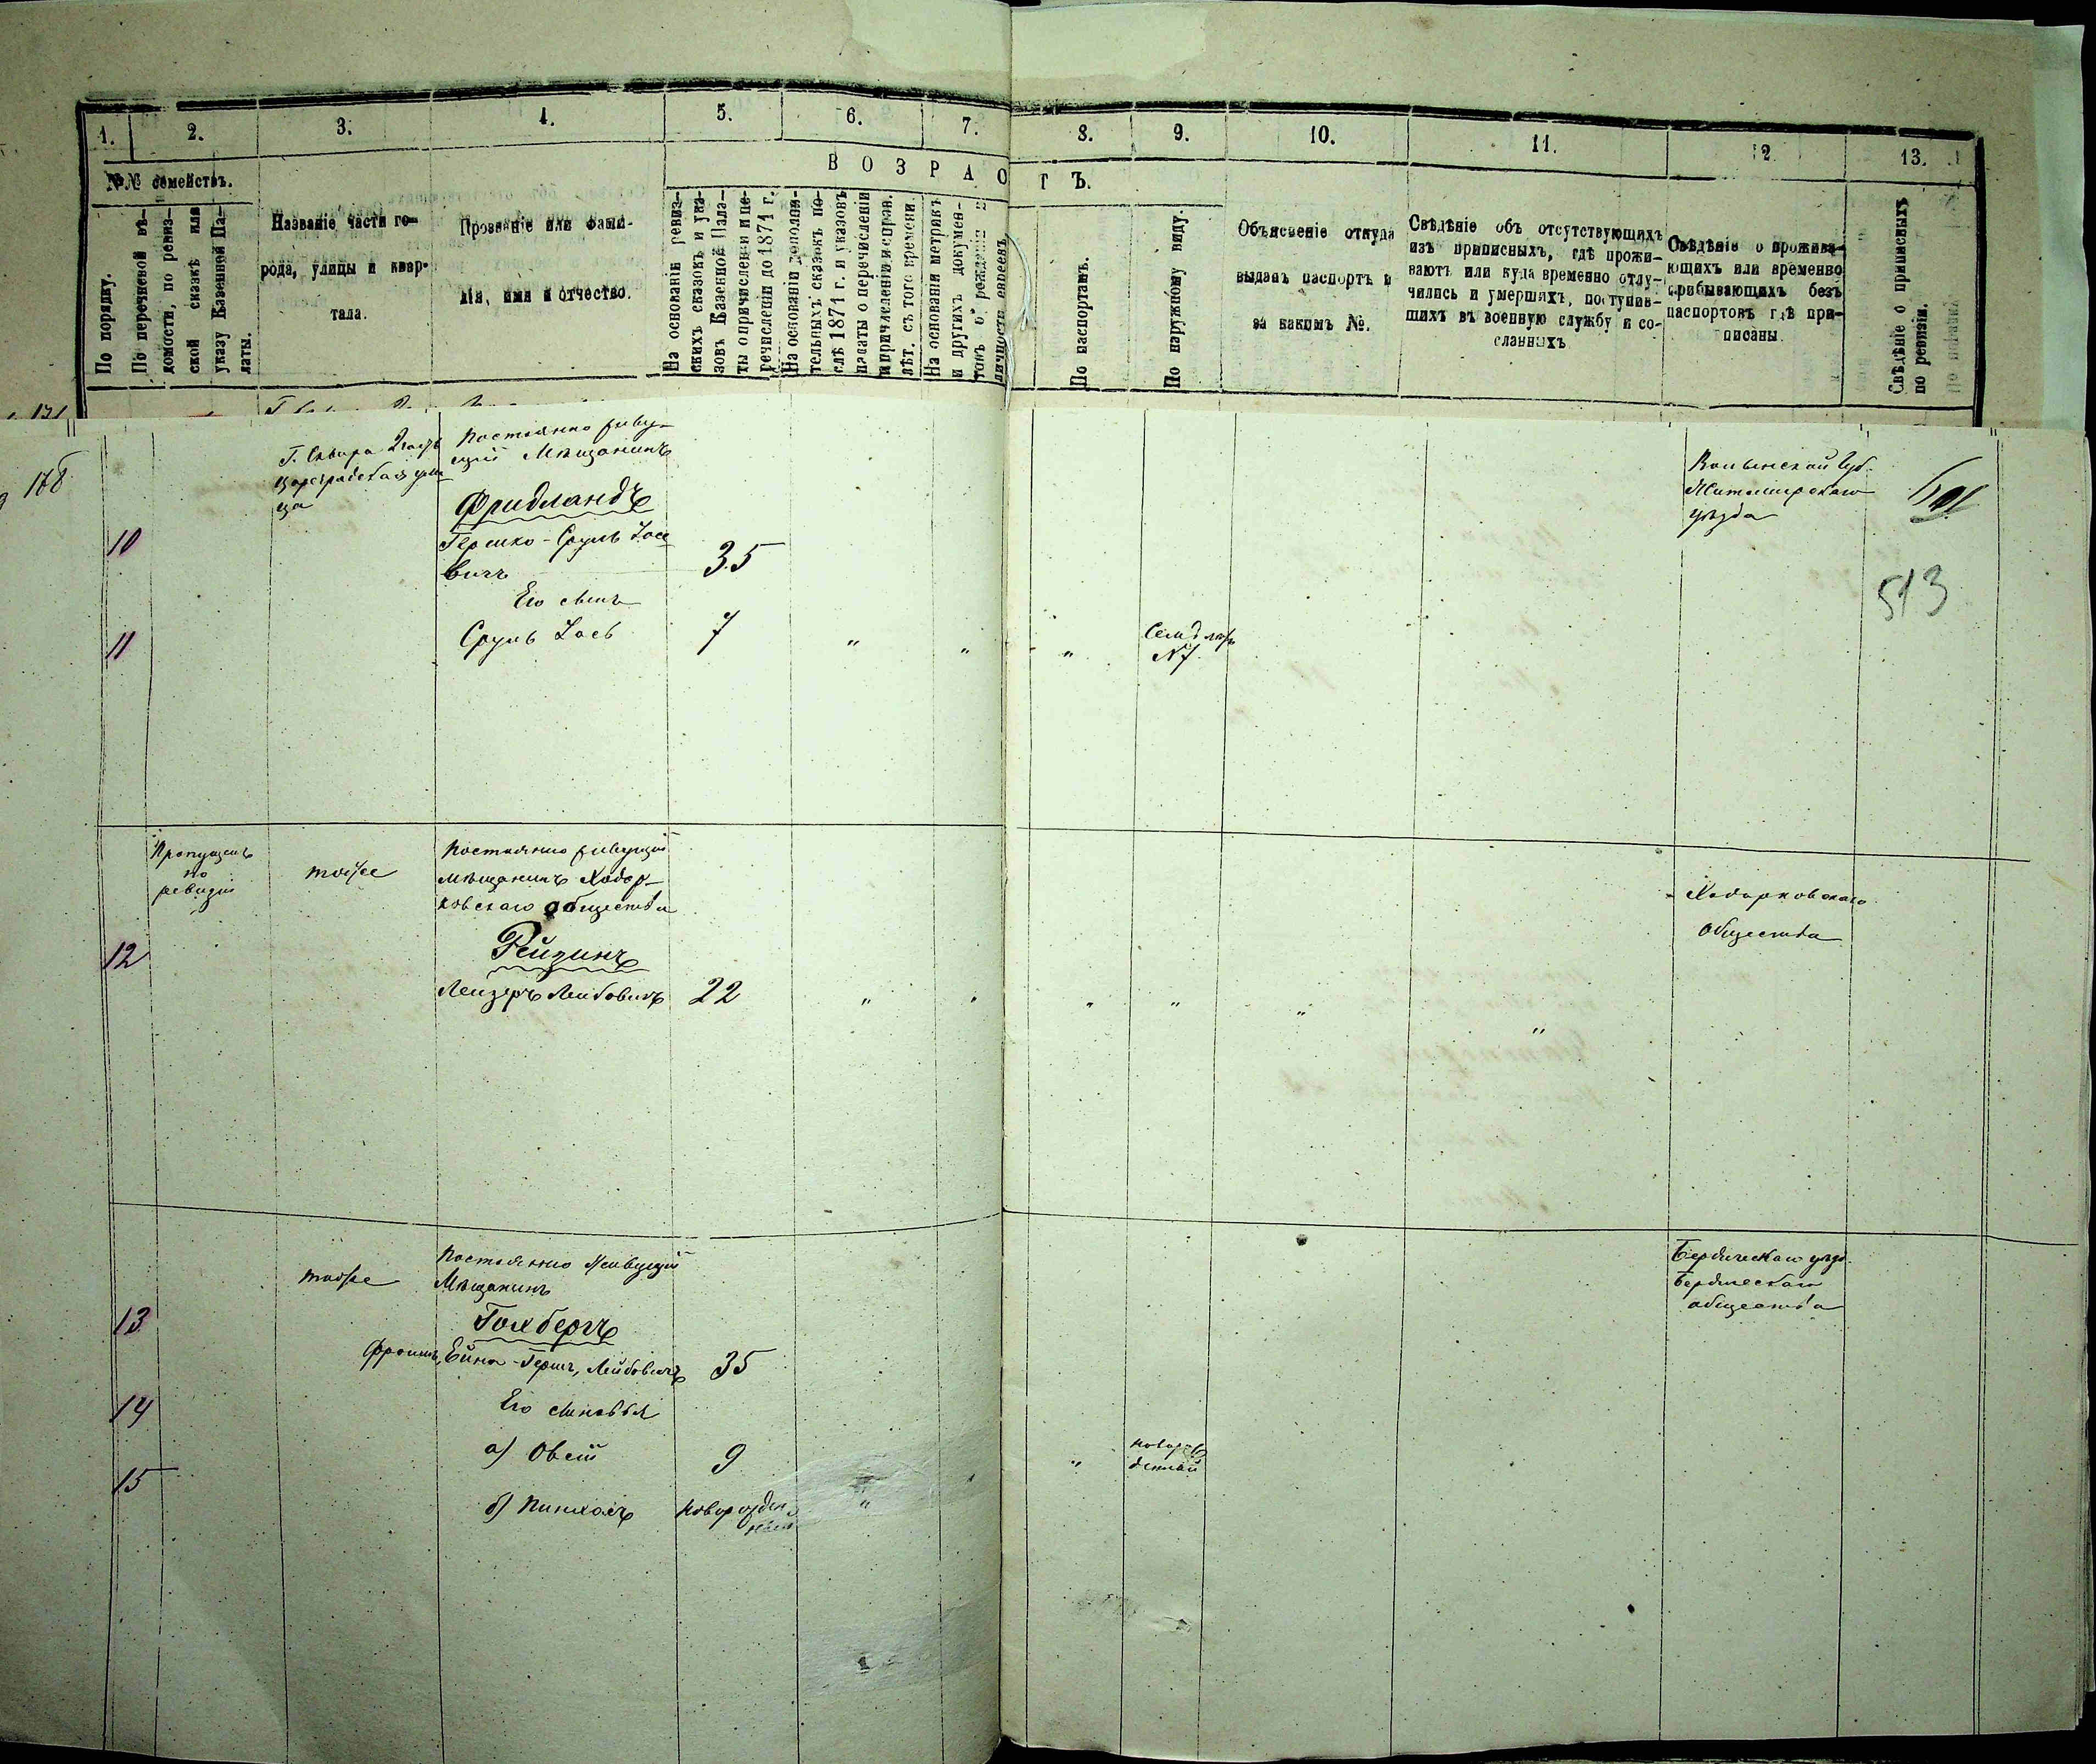 1. 2. 3. 4. 5. 6. 7. 8. 9. 10. 11. 12. 13.
№№ семействъ.
ВОЗРАСТЪ.
По порядку.
По перечневой вѣ-
домости, по ревиз-
ской сказкѣ или
указу Казенной Па-
латы.
Названіе части го-
рода, улицы и квар-
тала.
Прозваніе или фами-
лія, имя и отчество.
На основаніи ревиз-
скихъ сказокъ и ука-
зовъ Казенной Пала-
ты о причисленіи и пе-
речисленіи до 1871 г.
На основаніи дополни-
тельныхъ сказокъ по-
слѣ 1871 г. и указовъ
палаты о перечисленіи
и причисленіи и справ.
лѣт. съ того времени.
На основаніи метрикъ
и другихъ докумен-
товъ о рожденіи и
личности евреевъ.
По паспортамъ.
По наружному виду.
Объясненіе откуда
выданъ паспортъ и
за какимъ №.
Свѣдѣніе объ отсутствующихъ
изъ приписныхъ, гдѣ прожи-
ваютъ или куда временно отлу-
чились и умершихъ, поступив-
шихъ въ военную службу и со-
сланныхъ
Свѣдѣніе о прожива-
ющихъ или временно
прибывающихъ безъ
паспортовъ гдѣ при-
писаны.
Свѣдѣніе о приписныхъ
по ревизіи.
131
168
Г. Сквира 2 часть
Цареградская ули
ца
Постоянно живу-
щій Мѣщанинъ
Фридландъ
10
Гершко-Сруль Іосе
вичъ
35
Его сынъ
11
Сруль Іось
7 " " "
Семь лѣтъ
№ 7.
Волынской Губ.
Житомирскаго
уѣзда
513
Пропущенъ
по
ревизіи
тоже
Постоянно живущій
мѣщанинъ Ходор-
ковскаго общества
Рейзинъ
12
Лейзеръ Лейбовичъ 22 " " " " " "
Ходорковскаго
Общества
тоже
Постоянно Живущій
Мѣщанинъ
13
Голбергъ
Фроимъ, Ейна-Гершъ, Лейбовичъ 35
14
Его сыновья
а) Овсій 9
15
б) Пинхасъ новорожден
ный
" "
новорож
денный
Бердическаго уѣзд.
Бердическаго
общества